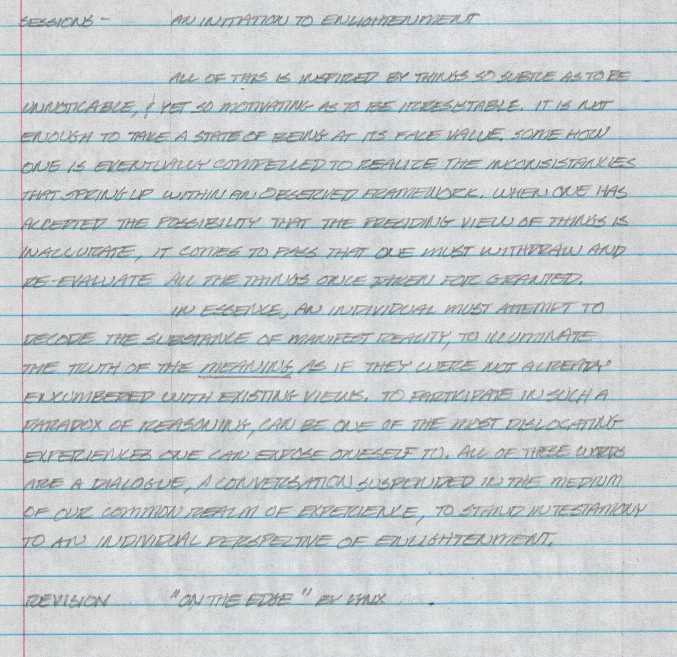 SESSIONS - AN INITATION TO ENLIGHTENMENT
ALL OF THIS IS INSPIRED BY THINGS SO SUBTLE AS TO BE
UNNOTICABLE, & YET SO MOTIVATING AS TO BE IRRESISTABLE. IT IS NOT
ENOUGH TO TAKE A STATE OF BEING AT ITS FACE VALUE. SOME HOW
ONE IS EVENTUALLY COMPELLED TO REALIZE THE INCONSISTANCIES
THAT SPRING UP WITHIN AN OBSERVED FRAMEWORK. WHEN ONE HAS
ACCEPTED THE POSSIBILITY THAT THE PRESIDING VIEW OF THINGS IS
INACCURATE, IT COMES TO PASS THAT ONE MUST WITHDRAW AND
RE-EVALUATE ALL THE THINGS ONCE TAKEN FOR GRANTED.
IN ESSENCE, AN INDIVIDUAL MUST ATTEMPT TO
DECODE THE SUBSTANCE OF MANIFEST REALITY, TO ILLUMINATE
THE TRUTH OF THE MEANING AS IF THEY WERE NOT ALREADY
ENCUMBERED WITH EXISTING VIEWS. TO PARTICIPATE IN SUCH A
PARADOX OF REASONING, CAN BE ONE OF THE MOST DISLOCATING
EXPERIENCES ONE CAN EXPOSE ONESELF TO. ALL OF THESE WORDS
ARE A DIALOGUE, A CONVERSATION SUSPENDED IN THE MEDIUM
OF OUR COMMON REALM OF EXPERIENCE, TO STAND IN TESTAMONY
TO AN INDIVIDUAL PERSPECTIVE OF ENLIGHTENMENT.
REVISION "ON THE EDGE" BY LYNX